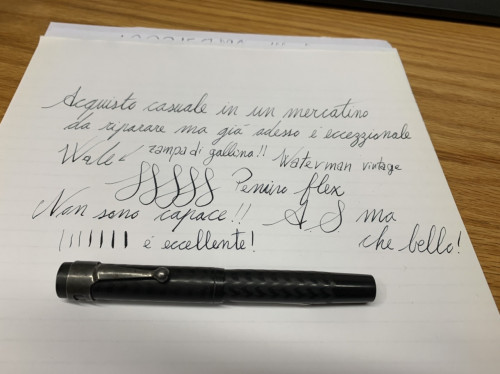 Acquisto casuale in un mercatino
da riparare ma già adesso è eccezzionale
Wale zampa di gallina!! Waterman vintage
SSSSS Pennino flex
Non sono capace!! A S ma
è eccellente! che bello!